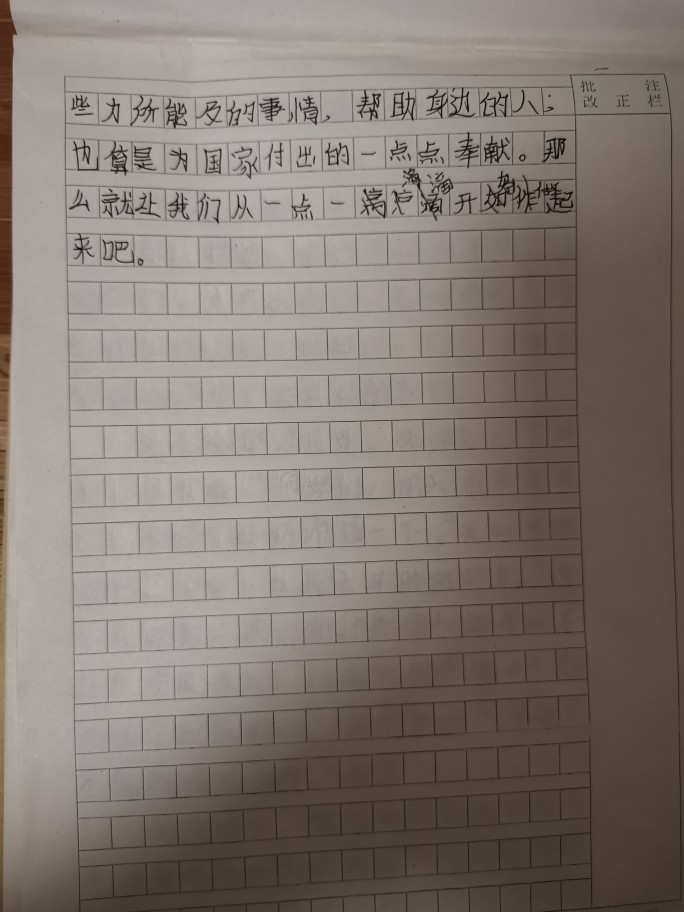 批注
改正栏
些力所能及的事情，帮助身边的人；
也算是为国家付出的一点点奉献。那
么就让我们从一点一滴开始做起
来吧。